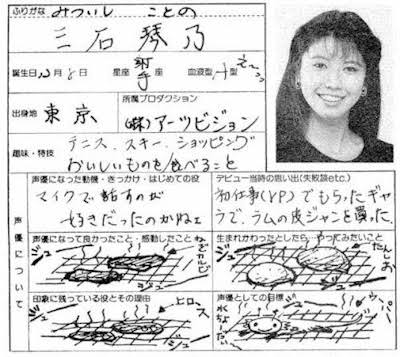 ふりがな みついし ことの
三石琴乃
誕生日12月8日 星座 射手座 血液型 A型 え〜っっ
出身地 東京 所属プロダクション
(株)アーツビジョン
趣味・特技 テニス、スキー、ショッピング
おいしいものを食べること
声優について
声優になった動機・きっかけ・はじめての役
マイクで、話すのが
好きだったのかねェ
デビュー当時の思い出(失敗談etc.)
初仕事(VP)でもらったギャ
ラで、ラムの皮ジャンを買った
声優になって良かったこと・感動したこと
ジュー
ねぎカルビ
ジュー
生まれかわったとしたら、やってみたいこと
ジュー
たんしお
ジュー
印象に残っている役とその理由
ジュー
ヒロース
ジュー
声優としての目標
ウッパー
ジュー